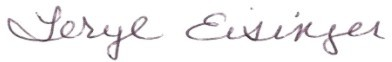 Teryl Eisinger